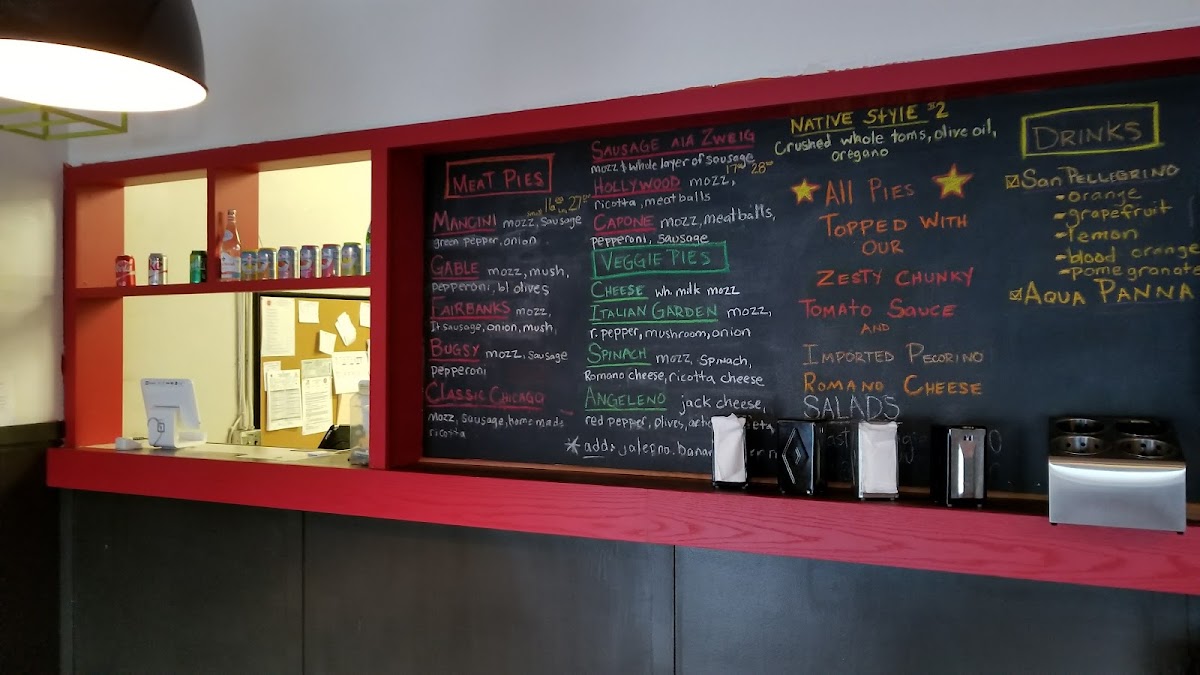 MEAT PIES
MANCINI mozz, sausage
green pepper, onion
GABLE mozz, mush,
pepperoni, bl olives
FAIRBANKS mozz,
It sausage, onion, mush,
BUGSY mozz, sausage
pepperoni
CLASSIC CHICAGO
mozz, sausage, homemade
ricotta
SAUSAGE ALA ZWEIG
mozz & whole layer of sausage
HOLLYWOOD mozz,
ricotta, meatballs
CAPONE mozz, meatballs,
pepperoni, sausage
VEGGIE PIES
CHEESE wh. milk mozz
ITALIAN GARDEN mozz,
r. pepper, mushroom, onion
SPINACH mozz, spinach,
Romano cheese, ricotta cheese
ANGELENO jack cheese,
red pepper, olives,
* add: jalepno, banan
NATIVE STYLE $2
Crushed whole toms, olive oil,
oregano
ALL PIES
TOPPED WITH
OUR
ZESTY CHUNKY
TOMATO SAUCE
AND
IMPORTED PECORINO
ROMANO CHEESE
SALADS
DRINKS
San PELLEGRINO
- orange
- grapefruit
- lemon
- blood orange
- pomegranate
AQUA PANNA